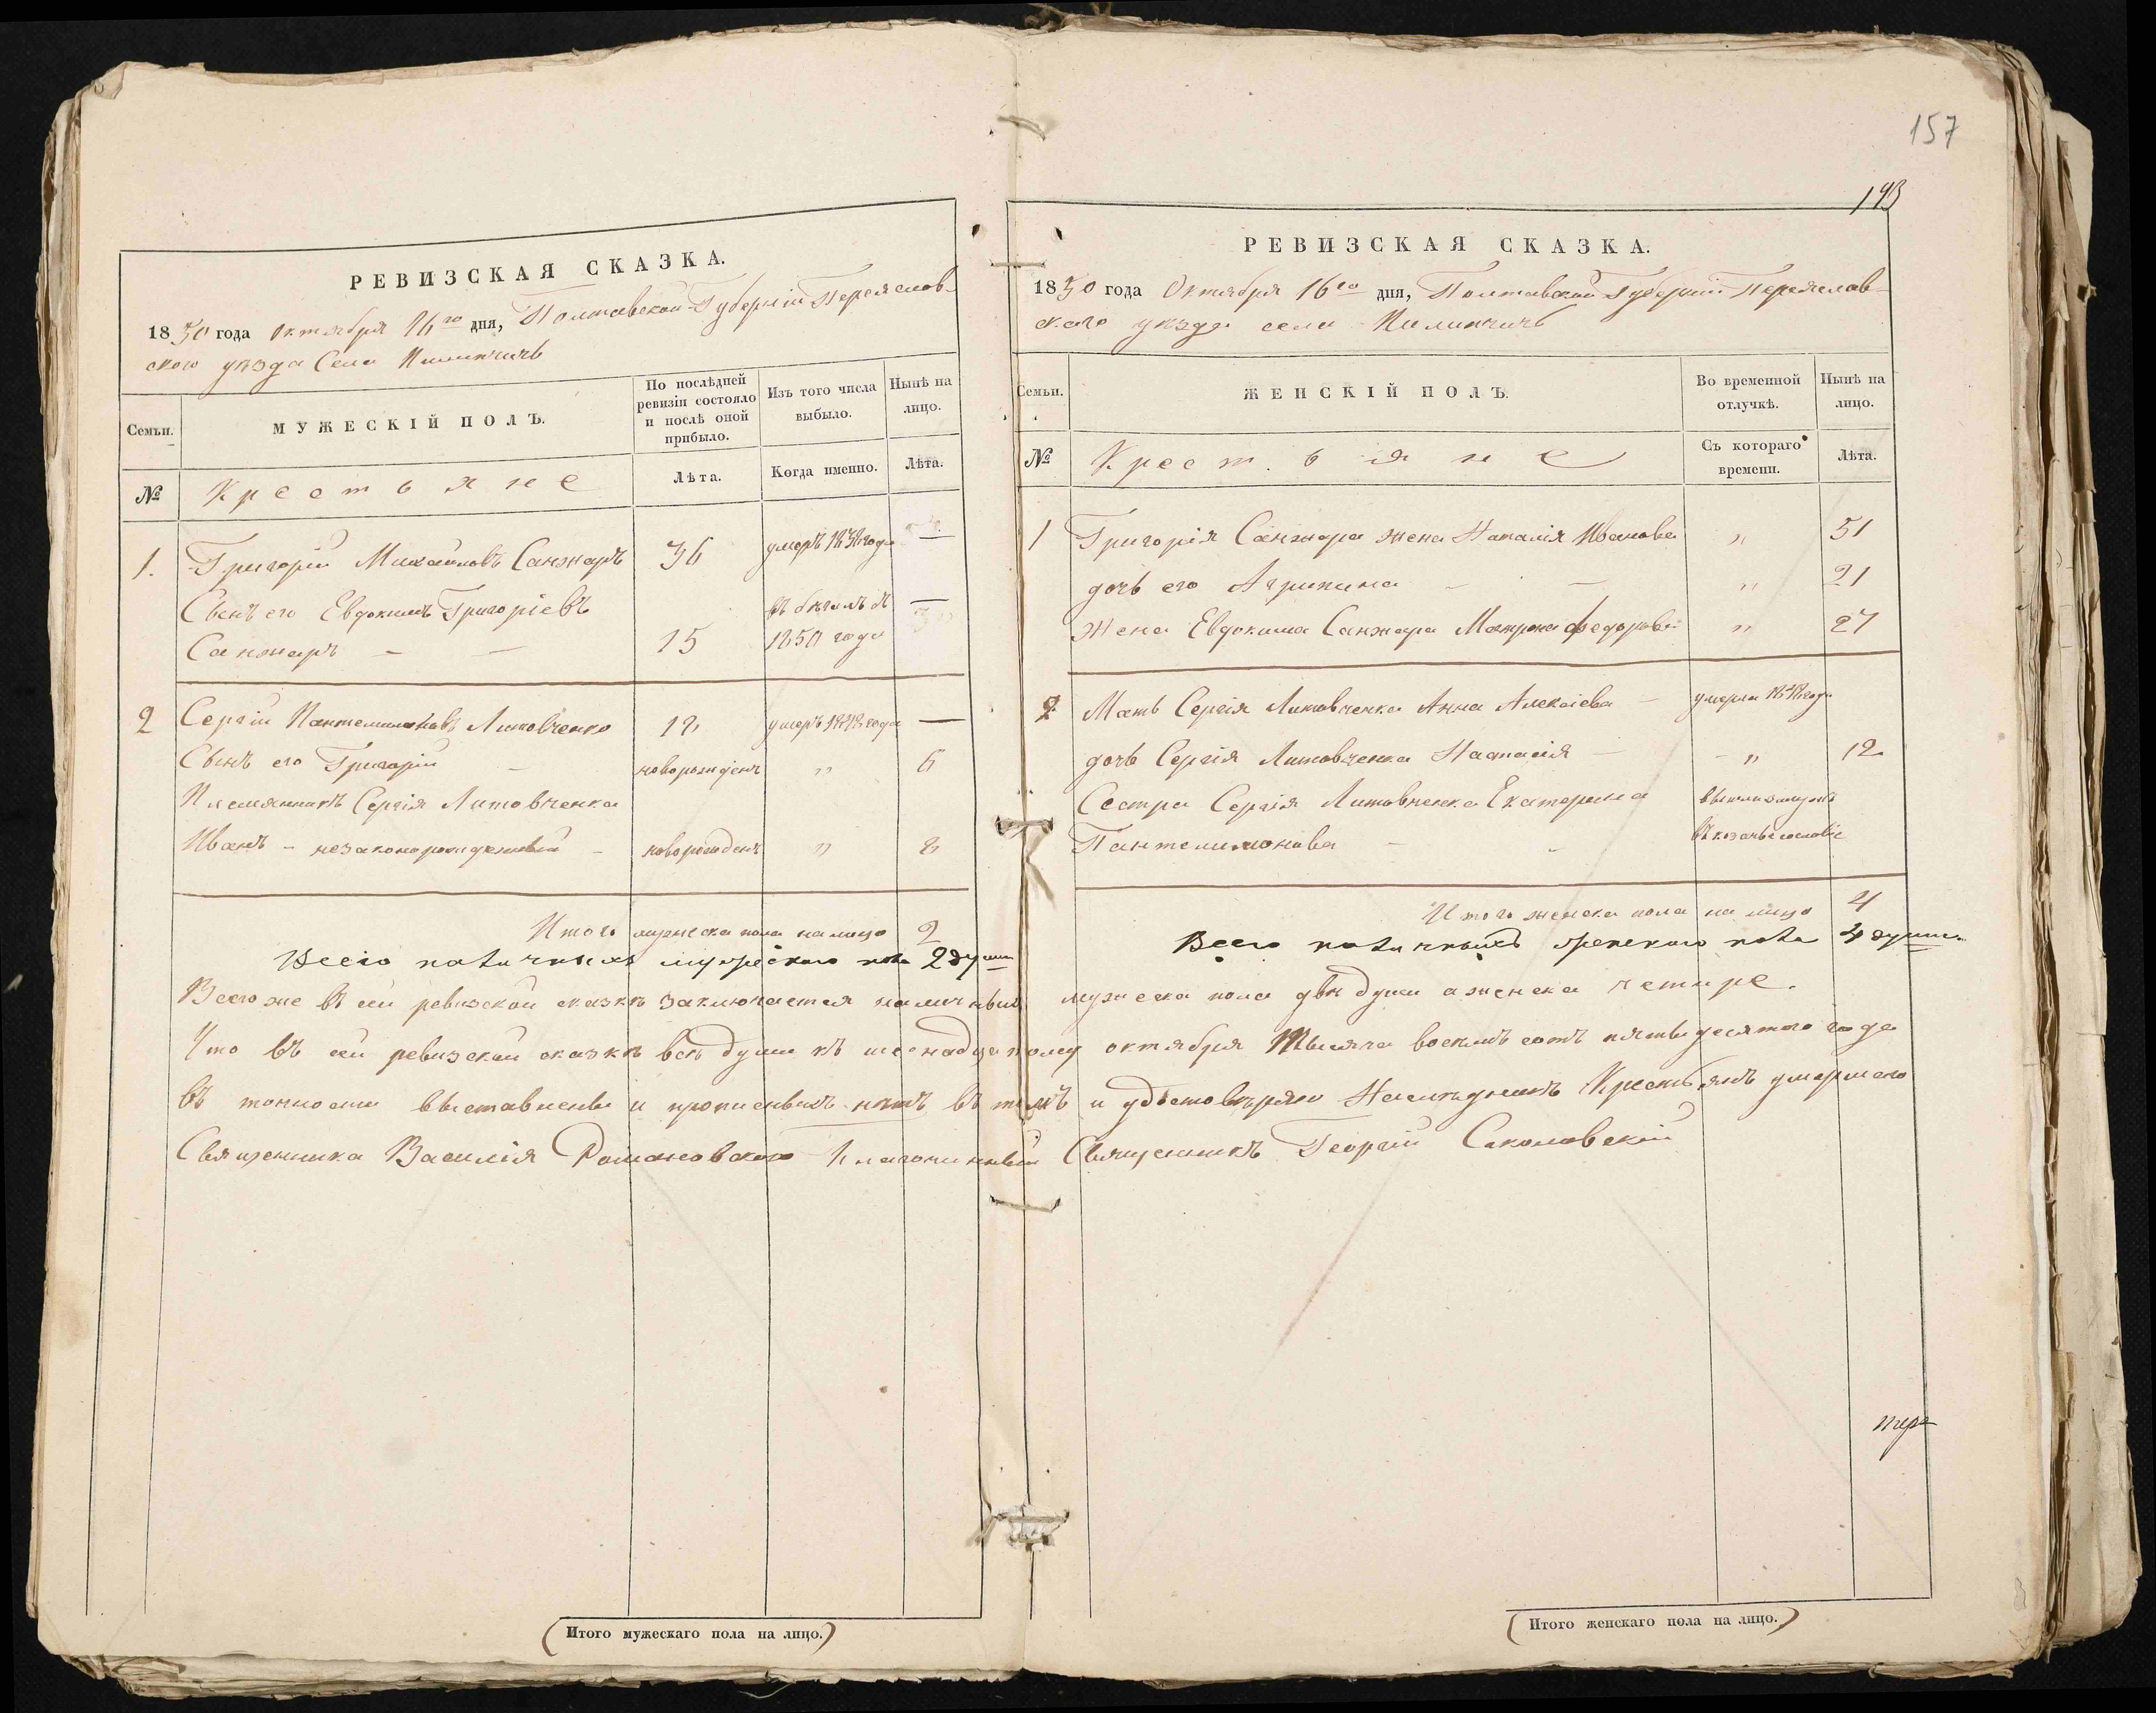 157
193
РЕВИЗСКАЯ СКАЗКА.
1850 года Октября 16го дня, Полтавской Губерніи Переяслов-
ского уѣзда Села
Семьи.
МУЖЕСКІЙ ПОЛЪ.
По послѣдней ревизіи состояло и послѣ оной прибыло.
Изъ того числа выбыло.
Нынѣ на лицо.
№
Крестьяне
Лѣта.
Когда именно.
Лѣта.
1. Григорій Михайловъ Санжаръ 36 умеръ года —
Сынъ его Евдокимъ Григоріевъ въ бѣгахъ съ —
Санжаръ — — 15 1850 года
2 Сергій Пантелимоновъ Литовченко 18 умеръ 1848 года —
Сынъ его Григорій — новорожденъ " 6
Племянникъ Сергія Литовченка
Иванъ – незаконорожденный – новорожденъ " 8
Итого мужеска пола налицо 2
Всего наличныхъ мужескаго пола 2 души
РЕВИЗСКАЯ СКАЗКА.
1850 года Октября 16го дня, Полтавской Губерніи Переяслав-
ского уѣзда села
Семьи.
ЖЕНСКІЙ ПОЛЪ.
Во временной отлучкѣ.
Нынѣ на лицо.
№
Крестьяне
Съ котораго времени.
Лѣта.
1 Григорія Санжара жена Наталія Иванова " 51
дочь его Агрипина – – " 21
Жена Евдокима Санжара Матрона Федорова " 27
2 Мать Сергія Литовченка Анна Алексіева – умерла 1848 года
дочь Сергія Литовченка Настасія – " 12
Сестра Сергія Литовченка Екатерина вышла замужъ
Пантелимонова – – въ козачье сословіе
Итого женска пола на лицо 4
Всего наличныхъ женскаго пола 4 души
Всего же въ сей ревизской сказкѣ заключается наличныхъ мужеска пола двѣ души а женска четыре.
Что въ сей ревизской сказкѣ всѣ души къ шеснадцатому октября Тысяча восемь сотъ пятьдесятого года
въ точности выставлены и прописныхъ нѣтъ въ томъ и удостовѣряю Наслѣдникъ Крестьянъ умершаго
Священника Василія Романовского Благочинный Священникъ Георгій Саколовскій
(Итого мужескаго пола на лицо.)
(Итого женскаго пола на лицо.)